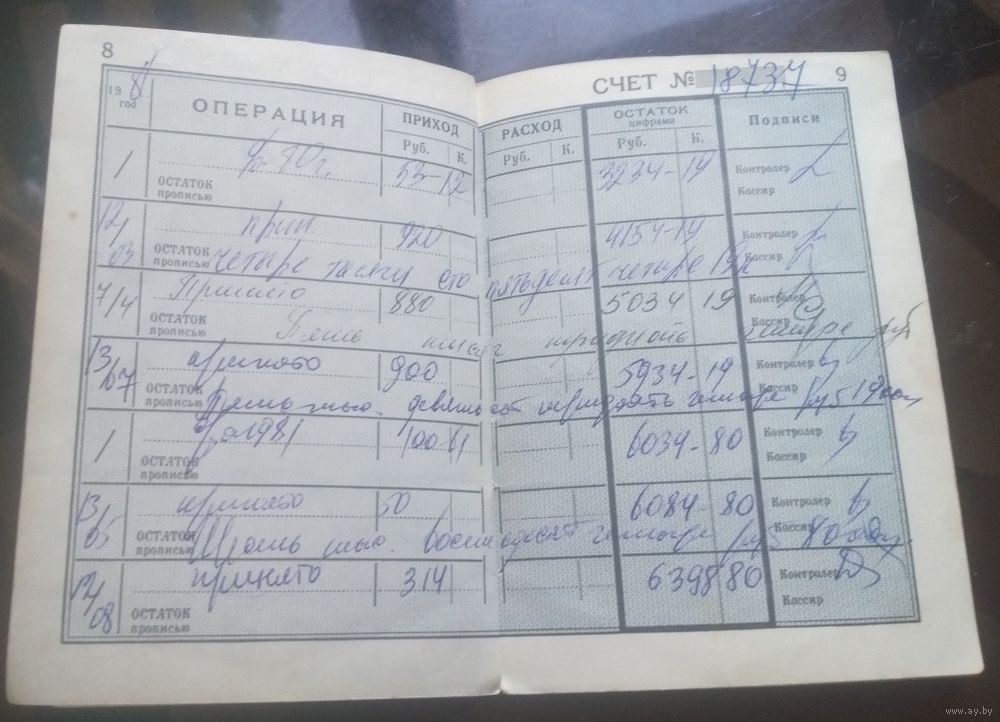 8
СЧЕТ № 18737 9
19 81 год ОПЕРАЦИЯ ПРИХОД РАСХОД ОСТАТОК цифрами Подписи
Руб. К. Руб. К. Руб. К.
1 % 80 г. 53-12 3234-19 Контролер
ОСТАТОК прописью Кассир
12/03 прин 920 4154-19 Контролер
ОСТАТОК прописью четыре тысячи сто пятьдесят четыре 19к Кассир
7/4 Принято 880 5034 19 Контролер
ОСТАТОК прописью Пять тысяч тридцать четыре руб Кассир
13/07 принято 900 5934-19 Контролер
ОСТАТОК прописью Пять тыс. девятьсот тридцать четыре руб 19 коп Кассир
1 % за 1981 100 61 6034-80 Контролер
ОСТАТОК прописью Кассир
13/05 принято 50 6084-80 Контролер
ОСТАТОК прописью Шесть тыс. восемьдесят четыре руб 80 коп. Кассир
12/08 принято 314 6398 80 Контролер
ОСТАТОК прописью Кассир
www.ay.by